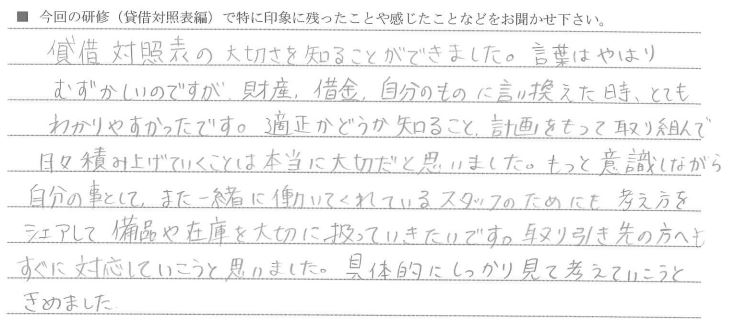 ■ 今回の研修（貸借対照表編）で特に印象に残ったことや感じたことなどをお聞かせ下さい。
貸借対照表の大切さを知ることができました。言葉はやはり
むずかしいのですが 財産、借金、自分のものに言い換えた時、とても
わかりやすかったです。適正かどうか知ること、計画をもって取り組んで
日々積み上げていくことは本当に大切だと思いました。もっと意識しながら
自分の事として、また一緒に働いてくれているスタッフのためにも 考え方を
シェアして 備品や在庫を大切に扱っていきたいです。取り引き先の方へも
すぐに対応していこうと思いました。具体的にしっかり見て考えていこうと
きめました